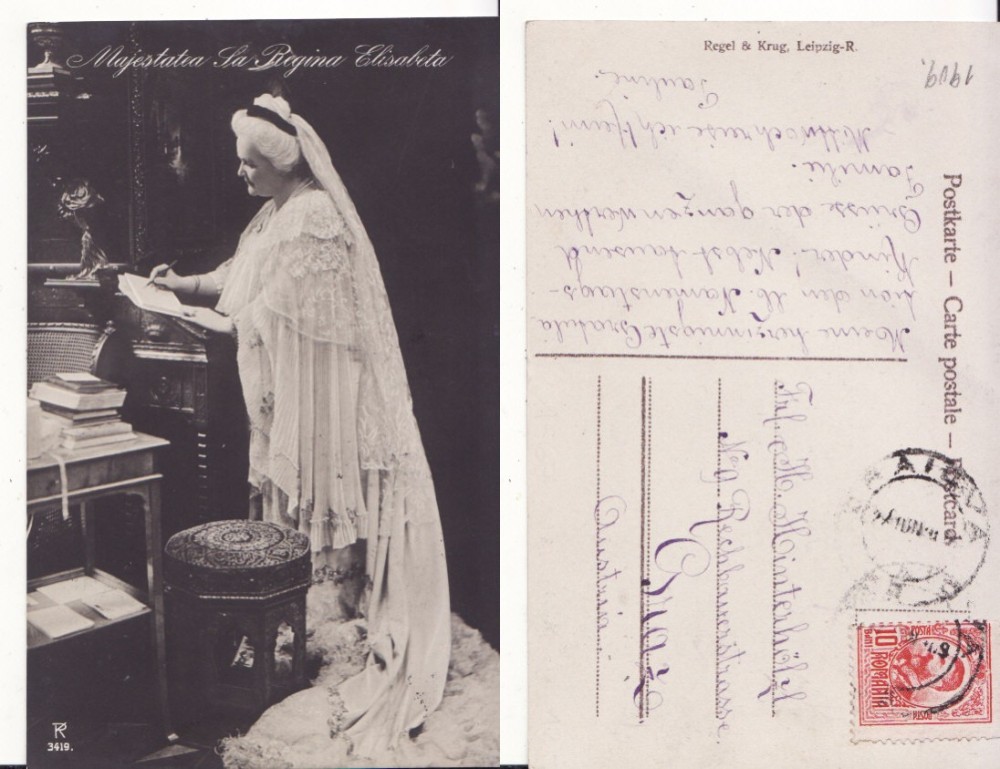 Majestatea Sa Regina Elisabeta
3419.
Regel & Krug, Leipzig-R.
1909.
Postkarte — Carte postale — Postcard
Meine herzinnigste Gratula-
tion den lb. Namenstags-
Kinder! Nebst tausend
Grüsse der ganzen werthen
Familie.
Mittwoch reise ich heim!
Pauline.
Frl. M. Hinterhölzl
Rechbauerstrasse
Graz
Austria
10 ROMANIA